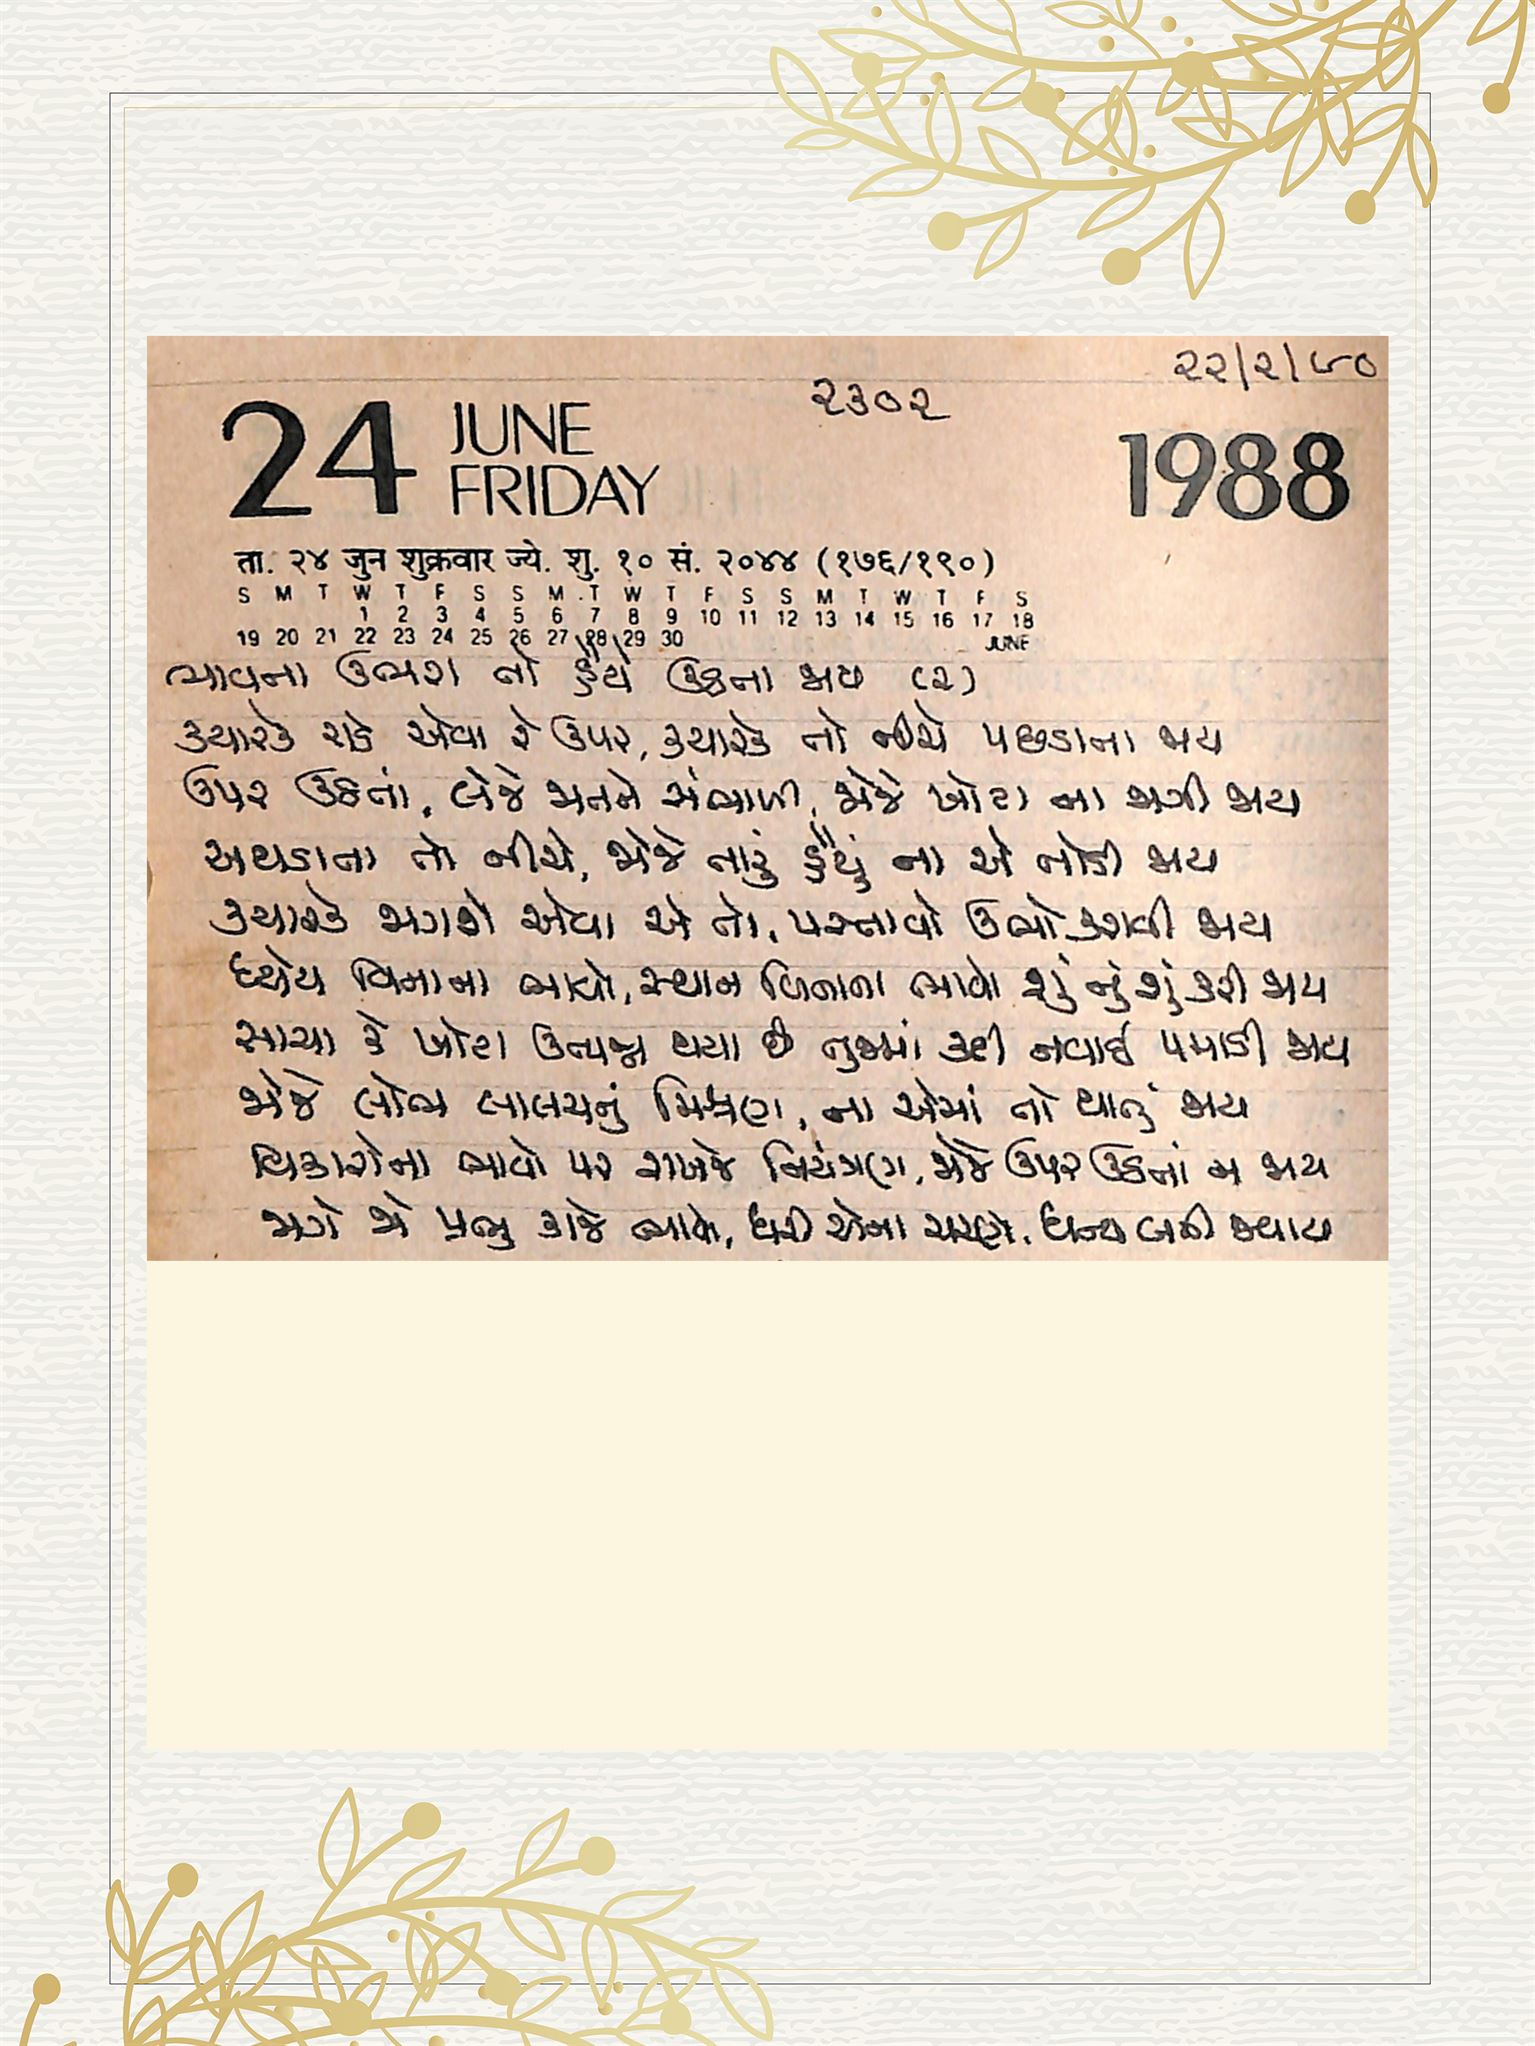 ૨૨/૨/૯૦
૨૩૦૨
24 JUNE FRIDAY 1988
ता. २४ जुन शुक्रवार ज्ये. शु. १० सं. २०४४ (१७६/१९०)
S M T W T F S S M T W T F S S M T W T F S
1 2 3 4 5 6 7 8 9 10 11 12 13 14 15 16 17 18
19 20 21 22 23 24 25 26 27 28 29 30 JUNE
ભાવના ઉભરા તો હૈયે ઉઠતા જાય (૨)
ક્યારેક રાકે એવા રે ઉપર, ક્યારેક તો નીચે પછડાતા જાય
ઉપર ઉઠતાં, લેજે મનને સંભાળી, જોજે ખોટા ના ભાગી જાય
અથડાતા તો નીચે, જોજે તારું હૈયું ના એ તોડી જાય
ક્યારેક જાગશે એવા એ તો, પસ્તાવો ઉભો કરાવી જાય
ધ્યેય વિનાના ભાવો, સ્થાન વિનાના ભાવો શું નું શું કરી જાય
સાચા કે ખોટા ઉત્પન્ન થયા છે તુજમાં કદી નવાઈ પમાડી જાય
જોજે લોભ લાલચનું મિશ્રણ, ના એમાં તો થાતું જાય
વિકારોના ભાવો પર રાખજે નિયંત્રણ, જોજે ઉપર ઉઠતાં ન જાય
જાગે જો પ્રભુ કાજે ભાવો, ધરી એના ચરણે, ધન્ય બની જવાય